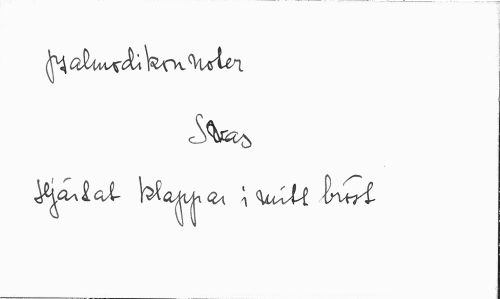 psalmodikonnoter
Hjärtat klappar i mitt bröst